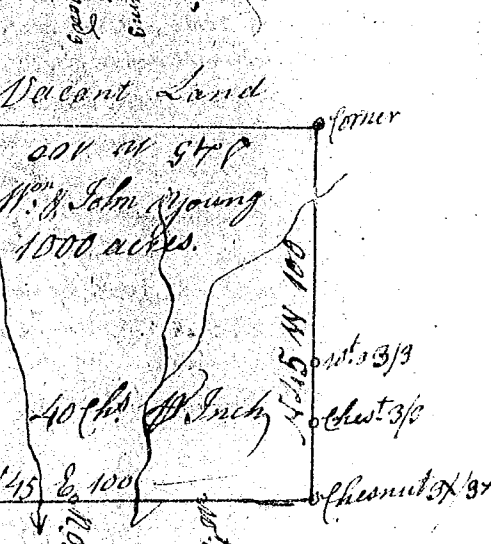 Vacant Land
Corner
S 45 W 100
Wm. & John Young
1000 acres.
N 45 W 100
W.o 3/3
40 Chs. P Inch
Chest 3/3
45 E 100
Chesnut 3X/3X